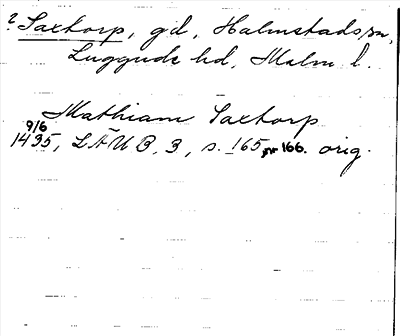 ? Saxtorp, gd, Halmstads sn,
Luggude hd, Malm. l.
Mathiam Saxtorp
9/6
1435, LÄUB, 3, s. 165, nr 166. orig.